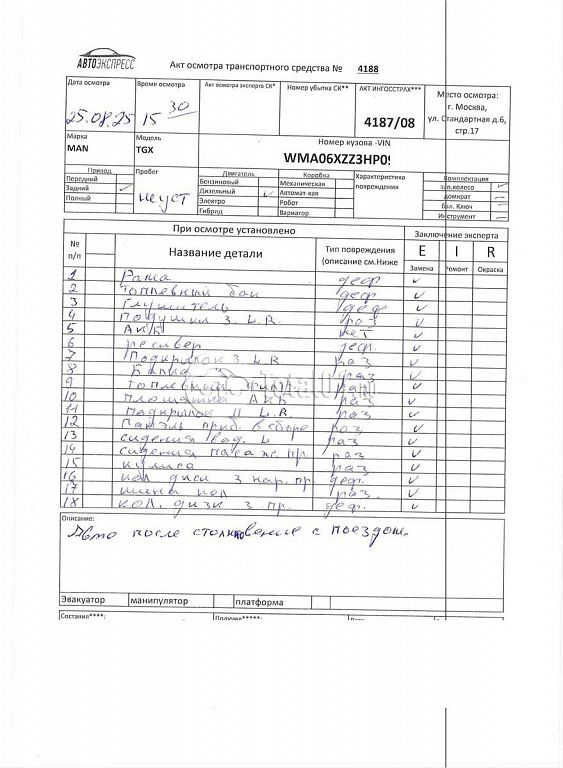 АВТОЭКСПРЕСС
Акт осмотра транспортного средства № 4188
Дата осмотра Время осмотра Акт осмотра эксперта СК* Номер убытка СК** АКТ ИНГОССТРАХ*** Место осмотра:
25.08.25 15 30 4187/08 г. Москва,
ул. Стандартная д.6,
стр.17
Марка Модель Номер кузова -VIN
MAN TGX WMA06XZZ3HP09
Привод Пробег Двигатель Коробка Характеристика повреждения Комплектация
Передний Бензиновый Механическая зап.колесо
Задний неуст Дизельный Автомат-кая домкрат
Полный Электро Робот бал. Ключ
Гибрид Вариатор Инструмент
При осмотре установлено Заключение эксперта
№ п/п Название детали Тип повреждения (описание см.Ниже E I R
Замена Ремонт Окраска
1 Рама деф
2 топливный бак деф
3 Глушитель деф
4 Подушки З. L.R. раз
5 АКБ нет
6 ресивер деф.
7 Подкрылок З L.R. раз
8 Балка раз
9 топливный фильт. раз
10 площадка АКБ раз
11 Подкрылок П L.R. раз
12 Панэль приб. в сборе раз
13 сидения вод. L раз
14 сидения пасаж. пр. раз
15 кулиса раз
16 кол диск З нар. пр. деф.
17 шина кол раз.
18 кол. диск З пр. деф.
Описание:
Авто после столкновение с поездом.
Эвакуатор манипулятор платформа
Составил****: Получил*****: